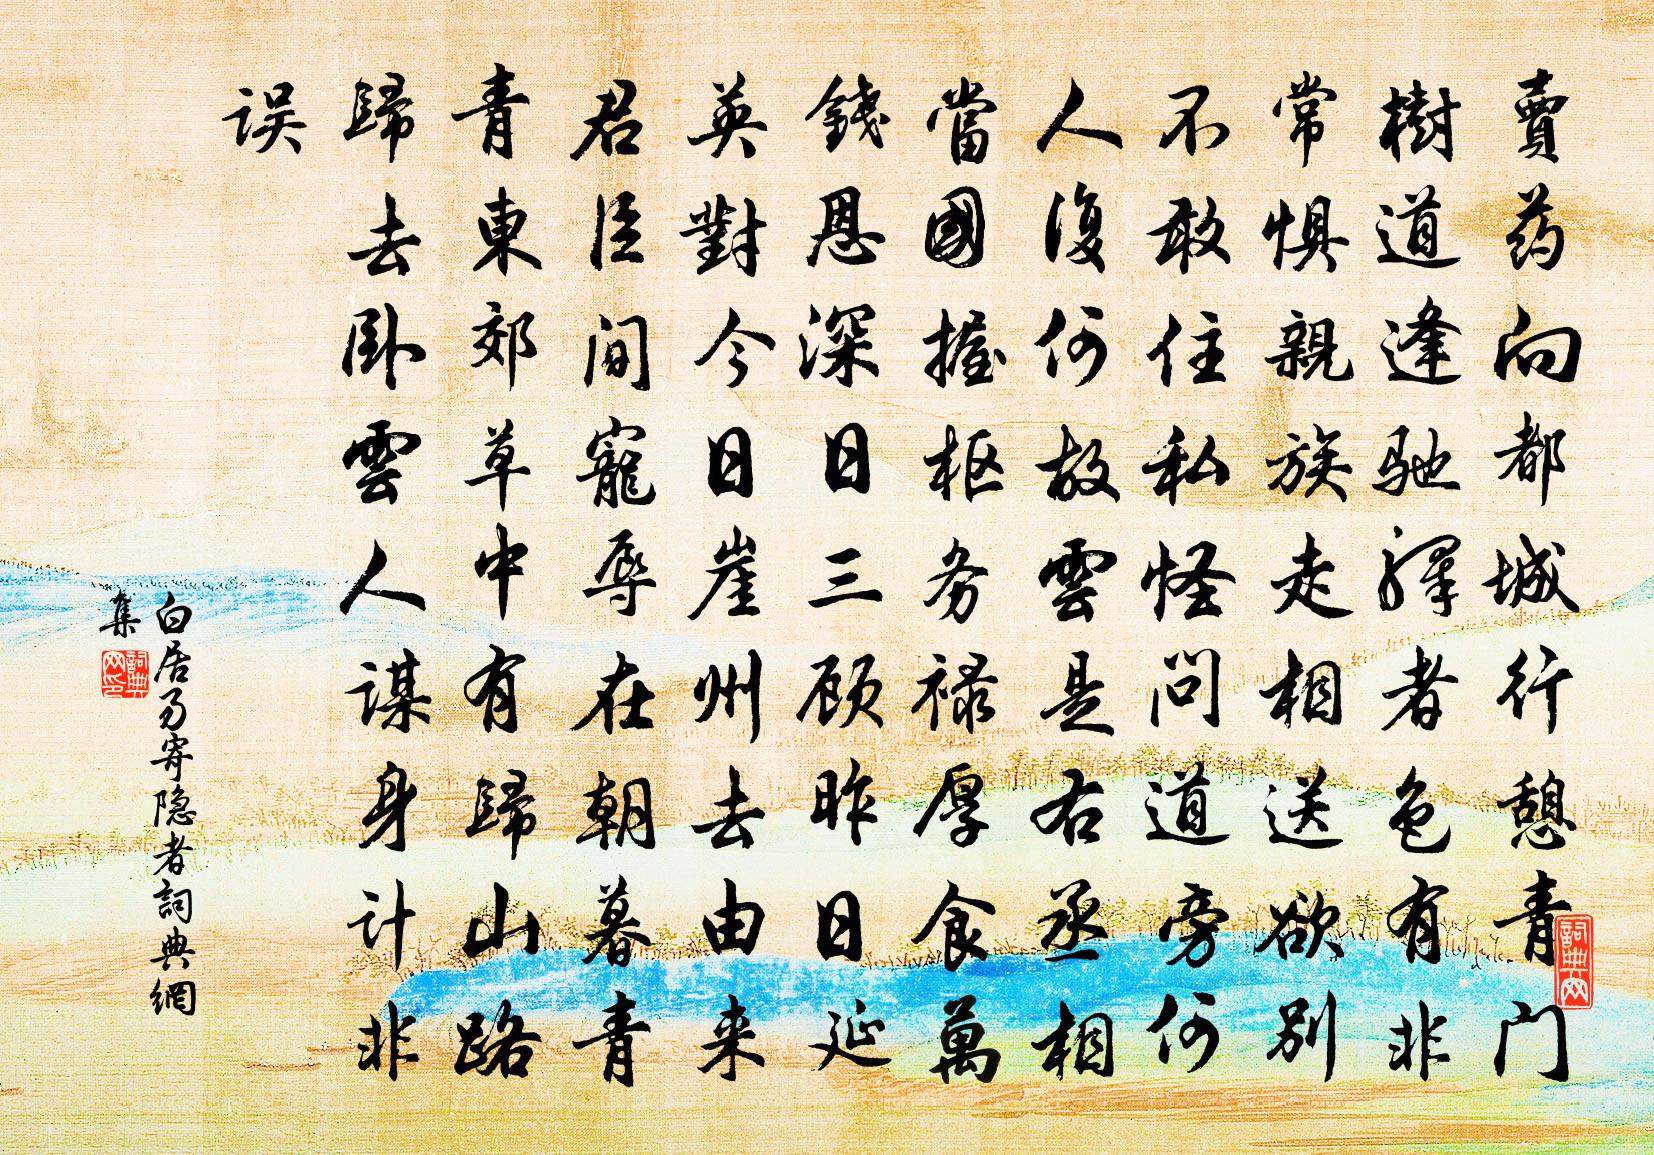 賣药向都城行憩青门
樹道逢驰驛者色有非
常惧親族走相送欲别
不敢住私怪问道旁何
人復何故雲是右丞相
當國握枢务禄厚食萬
錢恩深日三顾昨日延
英對今日崖州去由来
君臣间寵辱在朝暮青
青東郊草中有歸山路
歸去卧雲人谋身计非
误
白居易寄隐者詞典網
集
詞典网印
詞典网